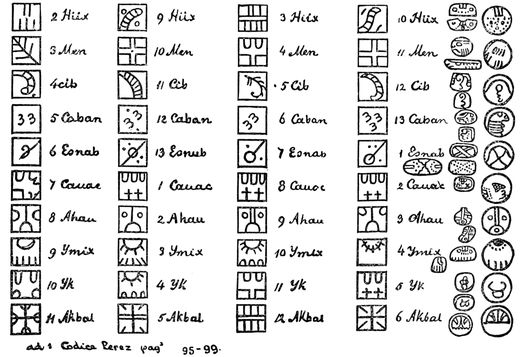 2 Hiix 9 Hiix 3 Hiix 10 Hiix
3 Men 10 Men 4 Men 11 Men
4 cib 11 Cib 5 Cib 12 Cib
5 Caban 12 Caban 6 Caban 13 Caban
6 Esnab 13 Esnab 7 Esnab 1 Esnab
7 Cauac 1 Cauac 8 Cauac 2 Cauac
8 Ahau 2 Ahau 9 Ahau 3 Ahau
9 Ymix 3 Ymix 10 Ymix 4 Ymix
10 Yk 4 Yk 11 Yk 5 Yk
11 Akbal 5 Akbal 12 Akbal 6 Akbal
ad s Codice Perez pag s 95-99.